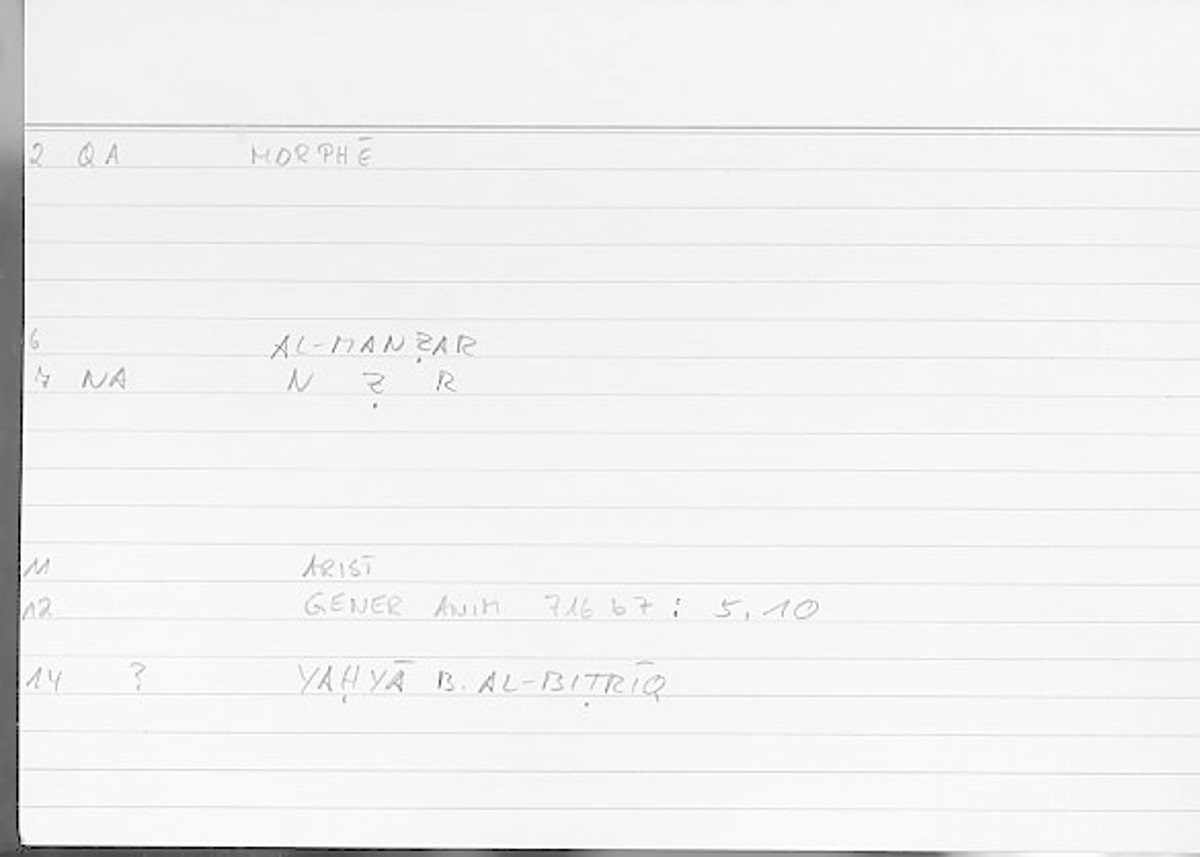 2 QA MORPHĒ
6 AL-MANẒAR
7 NA N Ẓ R
11 ARIST
12 GENER ANIM 716 b7 : 5,10
14 ? YAḤYĀ B. AL-BIṬRĪQ